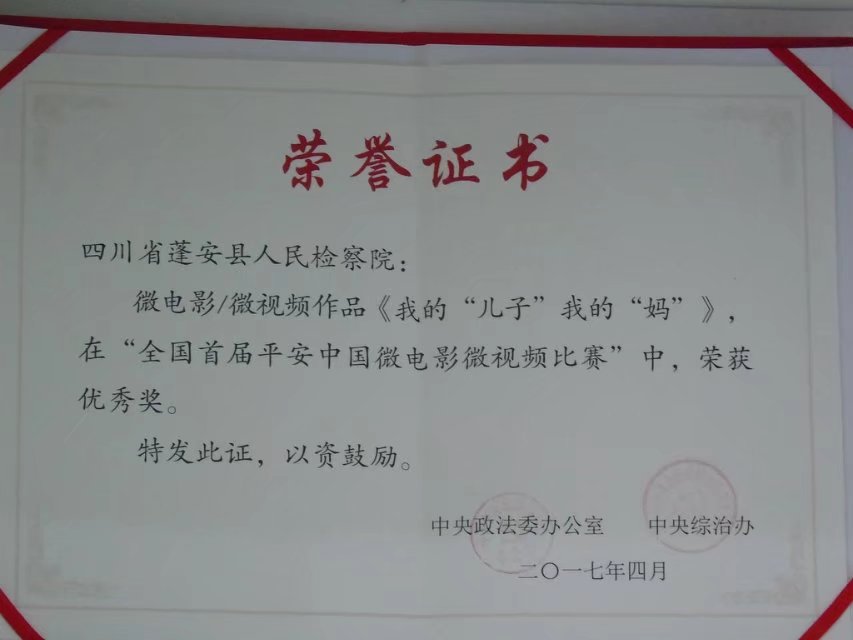 荣誉证书
四川省蓬安县人民检察院：
微电影/微视频作品《我的“儿子”我的“妈”》，
在“全国首届平安中国微电影微视频比赛”中，荣获
优秀奖。
特发此证，以资鼓励。
中央政法委办公室 中央综治办
二〇一七年四月